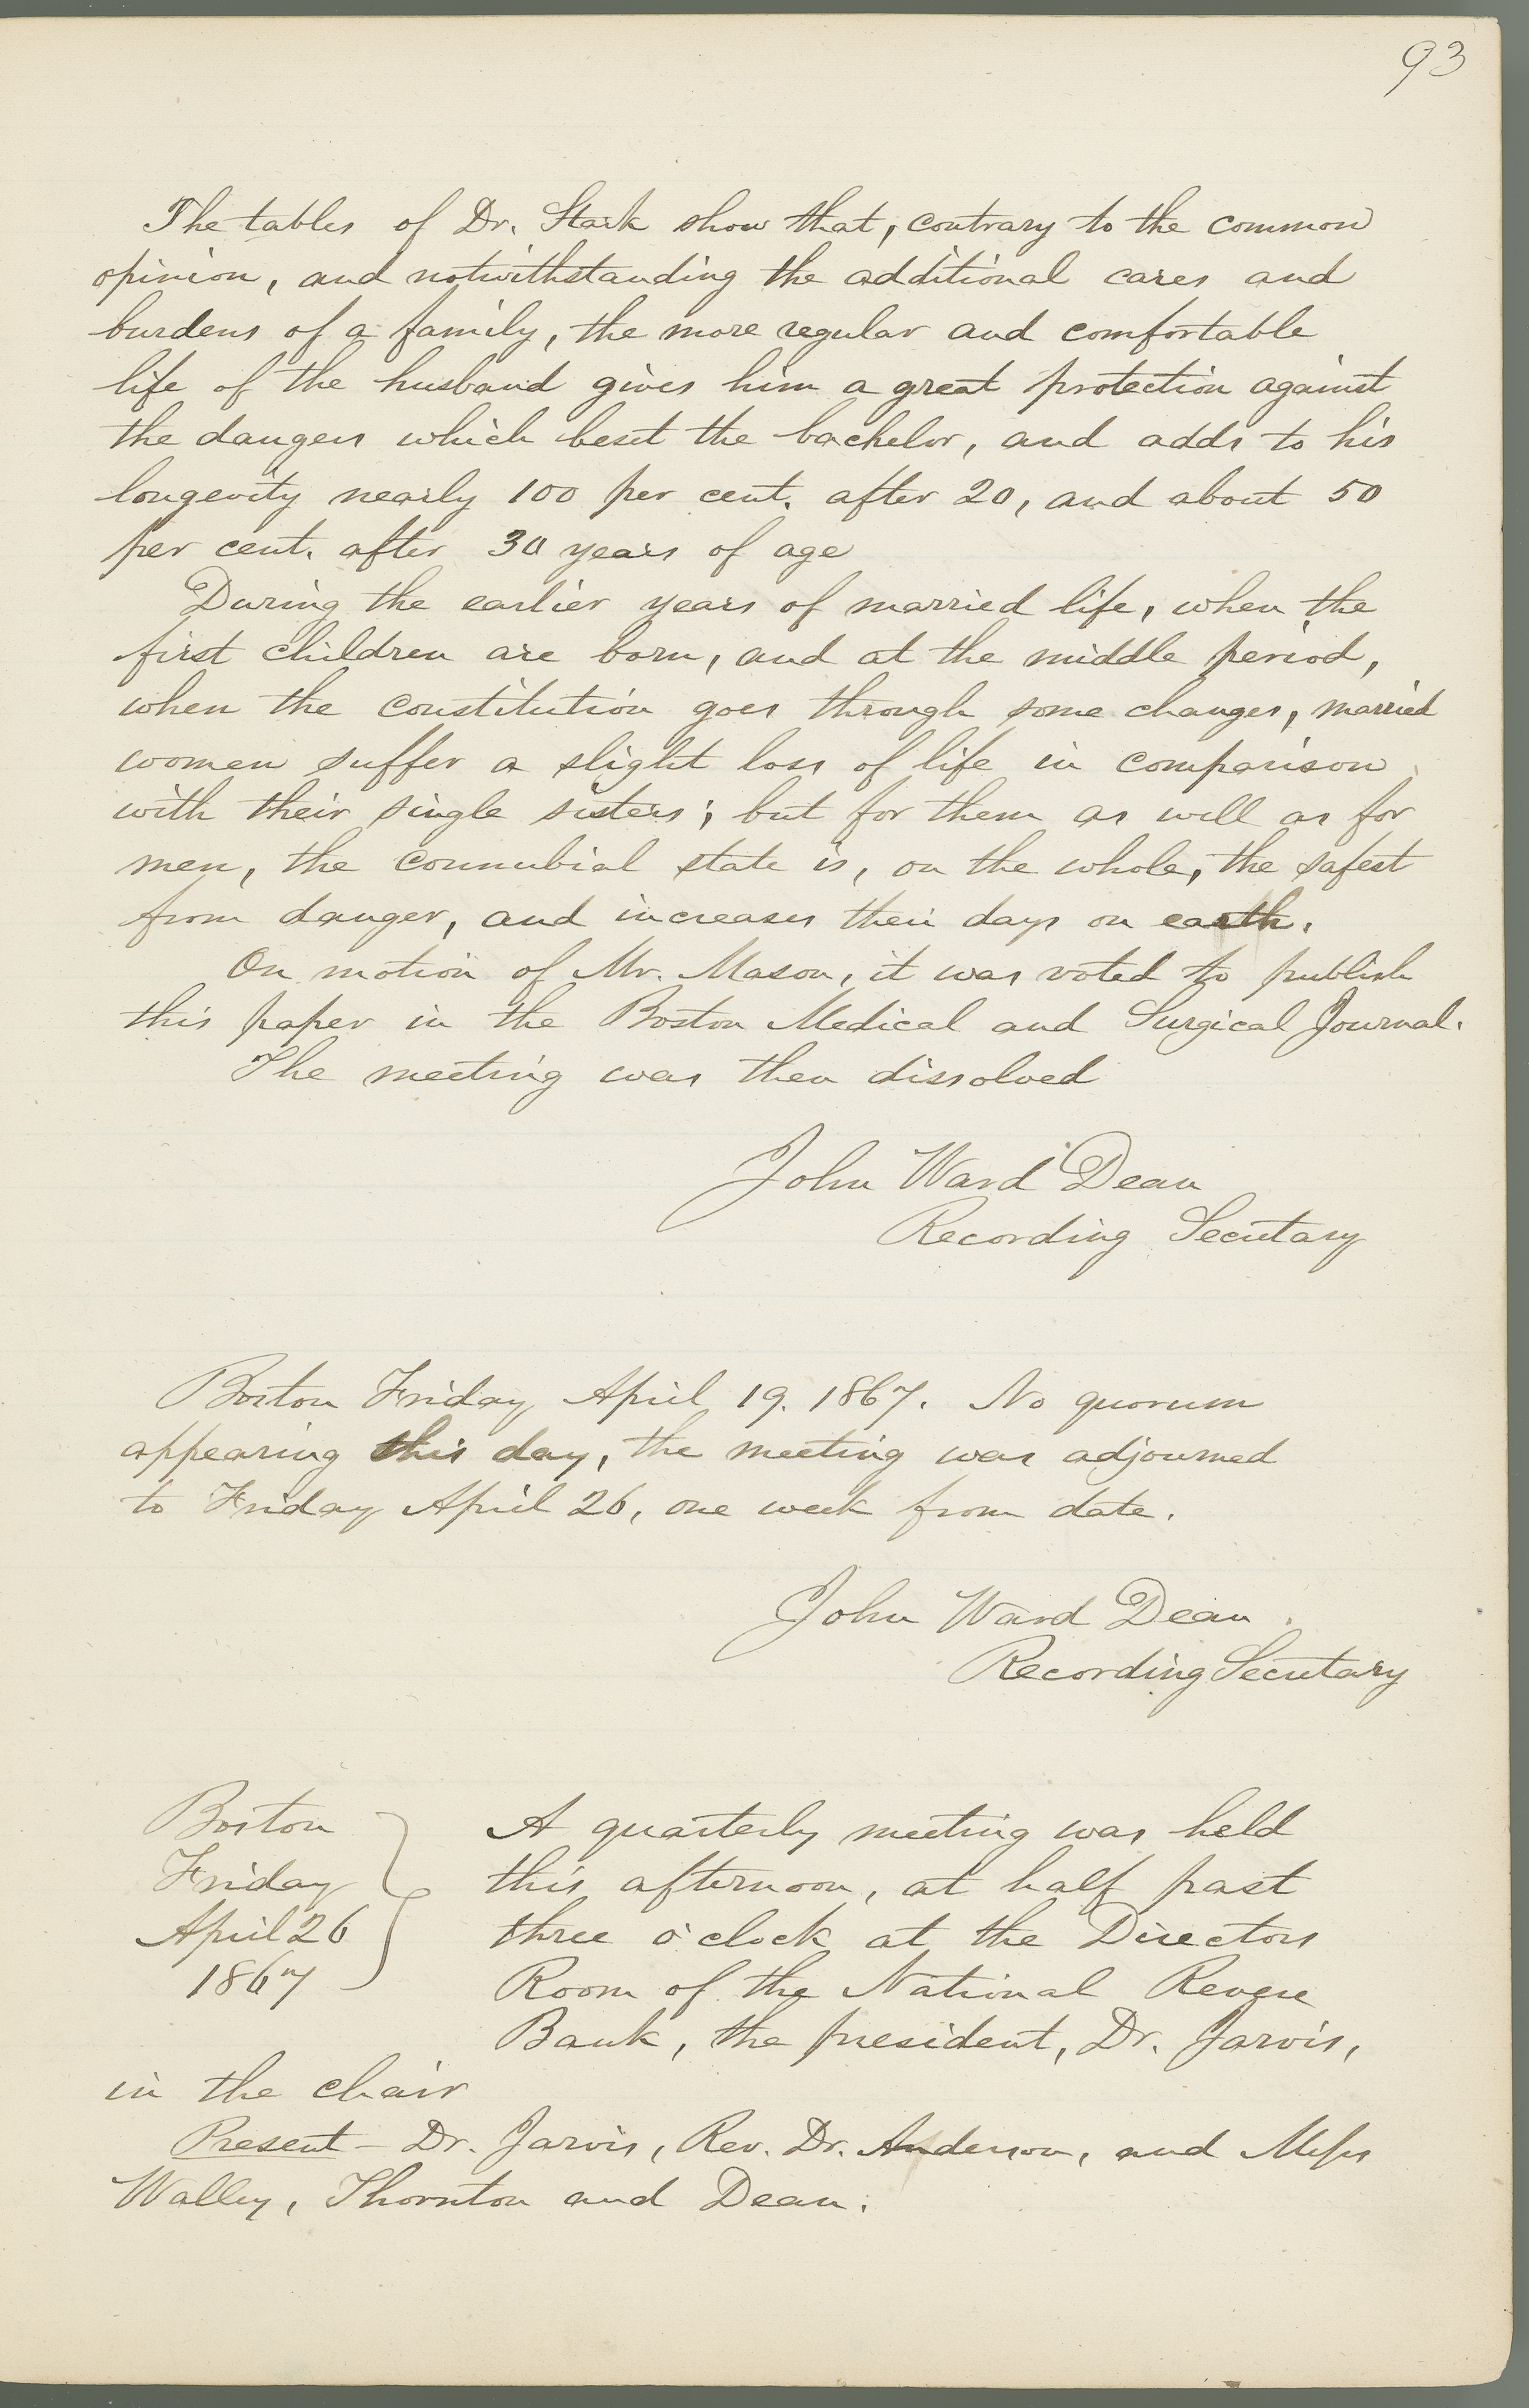 93
The tables of Dr. Stark show that, contrary to the common
opinion, and notwithstanding the additional cares and
burdens of a family, the more regular and comfortable
life of the husband gives him a great protection against
the dangers which beset the bachelor, and adds to his
longevity nearly 100 per cent. after 20, and about 50
per cent. after 30 years of age
During the earlier years of married life, when the
first children are born, and at the middle period,
when the constitution goes through some changes, married
women suffer a slight loss of life in comparison
with their single sisters; but for them as well as for
men, the connubial state is, on the whole, the safest
from danger, and increases their days on earth.
On motion of Mr. Mason, it was voted to publish
this paper in the Boston Medical and Surgical Journal.
The meeting was then dissolved
John Ward Dean
Recording Secretary
Boston Friday April 19. 1867. No quorum
appearing this day, the meeting was adjourned
to Friday April 26, one week from date.
John Ward Dean.
Recording Secretary
Boston
Friday
April 26
1867
A quarterly meeting was held
this afternoon, at half past
three o'clock at the Directors
Room of the National Revere
Bank, the president, Dr. Jarvis,
in the chair
Present – Dr. Jarvis, Rev. Dr. Anderson, and Messrs
Walley, Thornton and Dean.